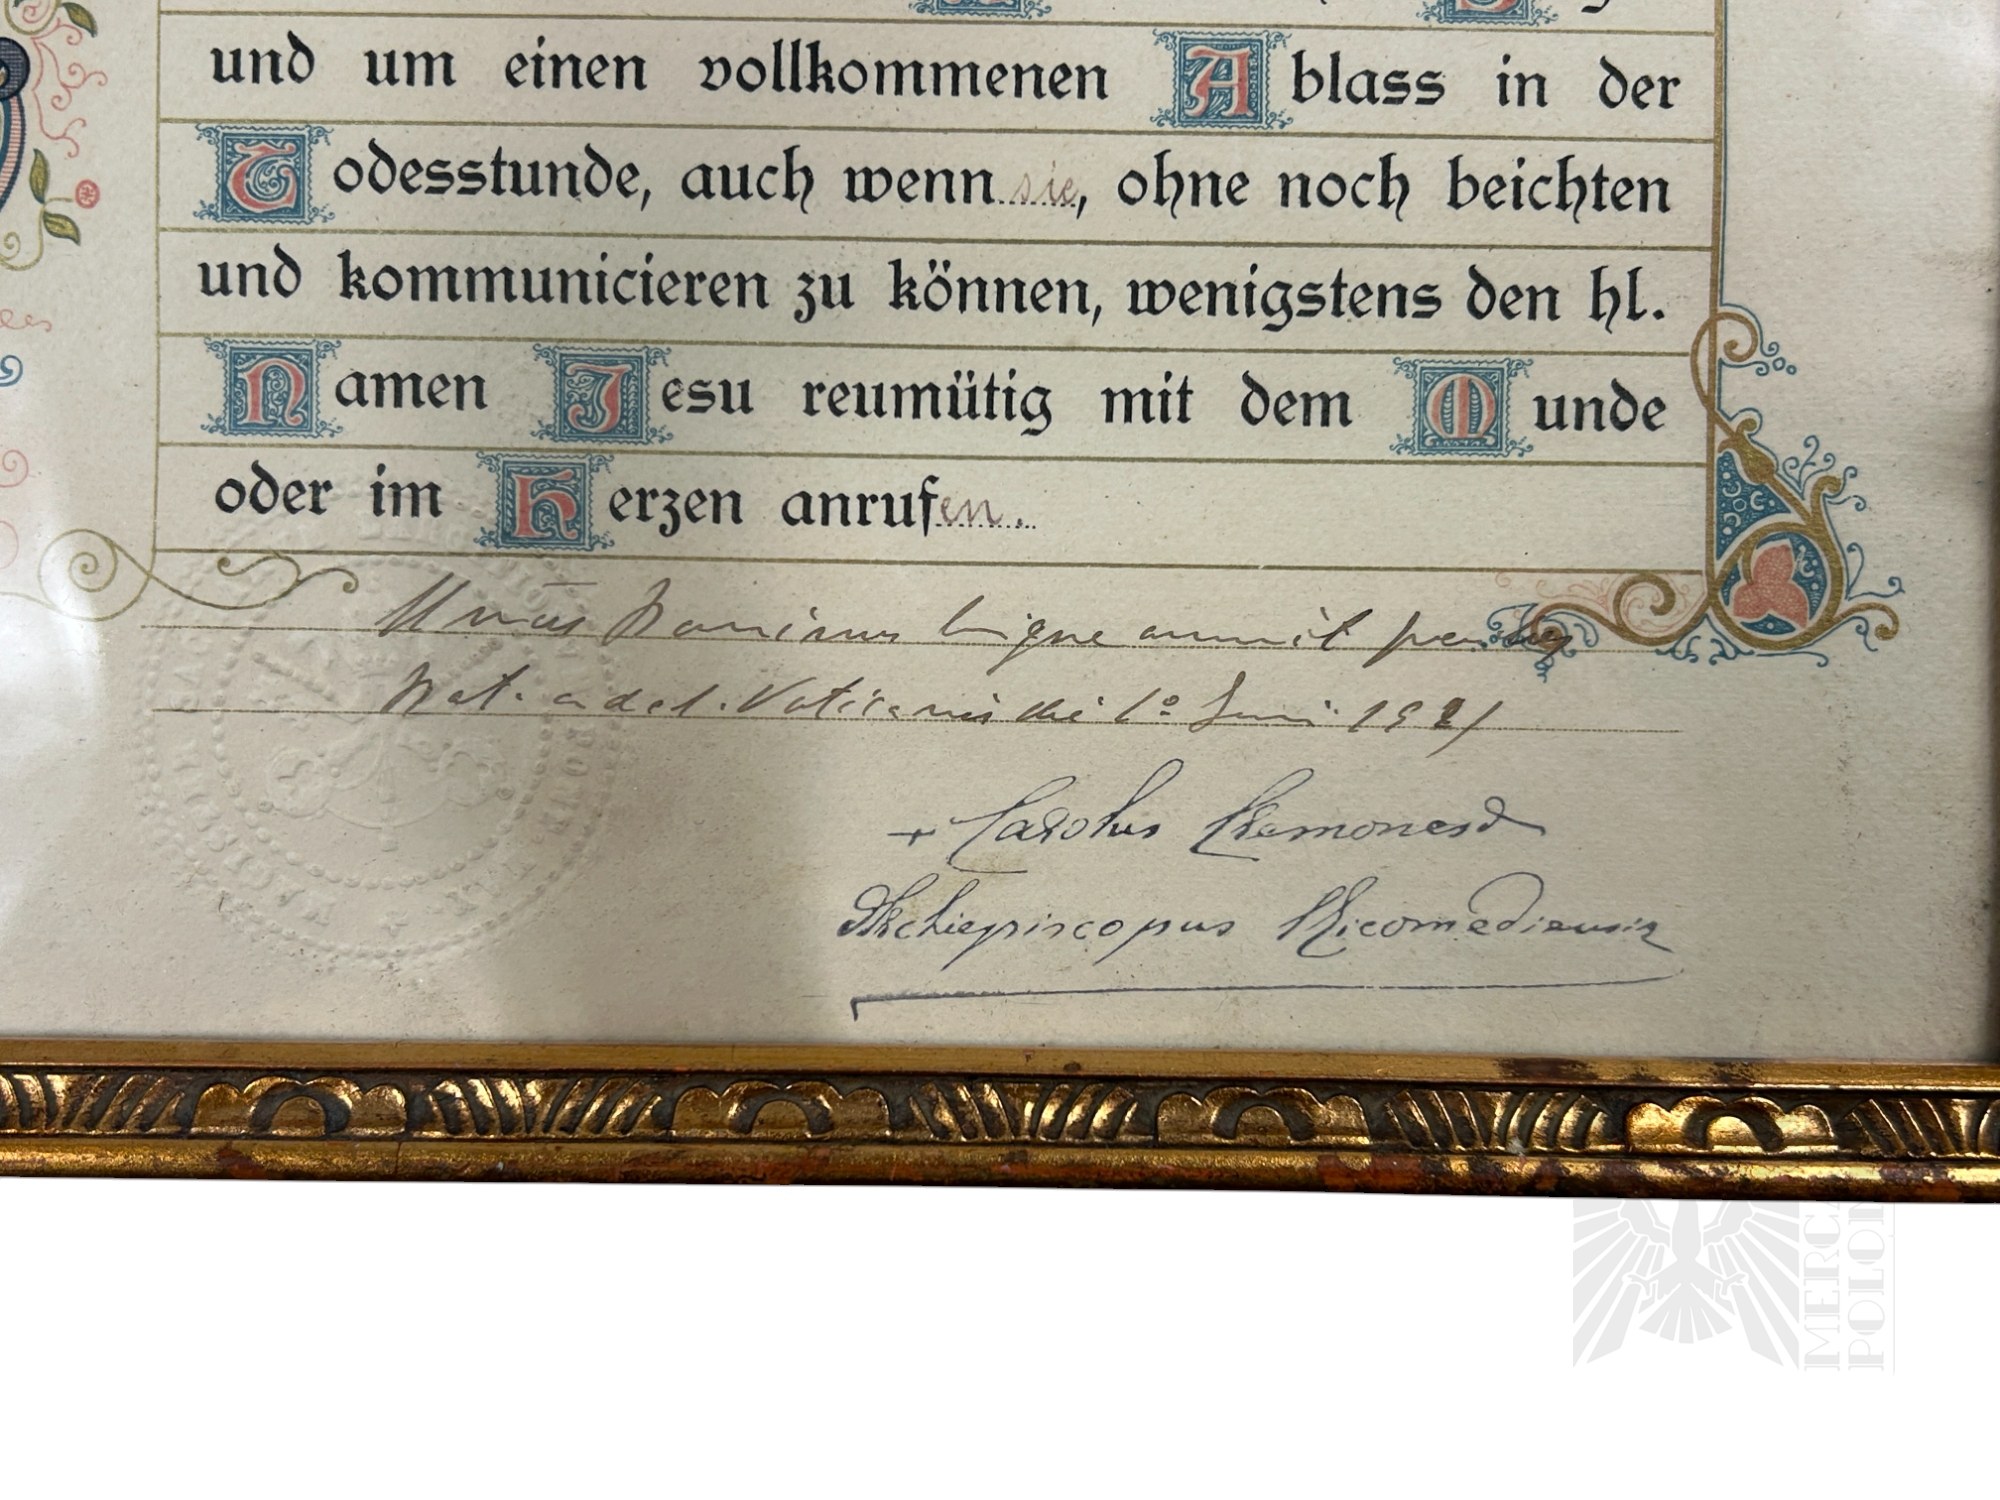 und um einen vollkommenen Ablass in der
Todesstunde, auch wenn sie, ohne noch beichten
und kommunicieren zu können, wenigstens den hl.
Namen Jesu reumütig mit dem Munde
oder im Herzen anrufen.
benigne annuit
Vaticanis die 1º Juni 1921
+ Carolus Cremonesi
Archiepiscopus Nicomediensis